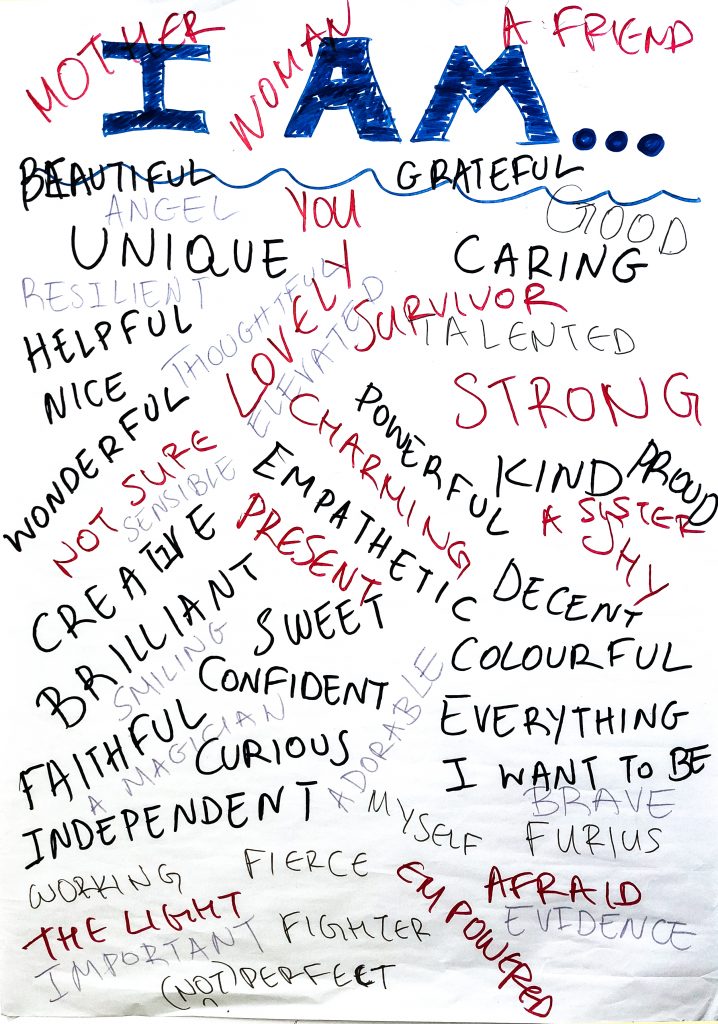 MOTHER
WOMAN
A FRIEND
I AM...
BEAUTIFUL
GRATEFUL
ANGEL
YOU
GOOD
UNIQUE
CARING
RESILIENT
THOUGHTFUL
LOVELY
ELEVATED
SURVIVOR
HELPFUL
TALENTED
NICE
STRONG
WONDERFUL
CHARMING
POWERFUL
KIND
PROUD
NOT SURE
SENSIBLE
EMPATHETIC
A SYSTER
SHY
CREATIVE
PRESENT
BRILLIANT
SWEET
DECENT
SMILING
CONFIDENT
COLOURFUL
FAITHFUL
A MAGICIAN
CURIOUS
ADORABLE
EVERYTHING
I WANT TO BE
INDEPENDENT
MYSELF
BRAVE
FURIUS
WORKING
FIERCE
EMPOWERED
AFRAID
THE LIGHT
FIGHTER
EVIDENCE
IMPORTANT
(NOT) PERFECT